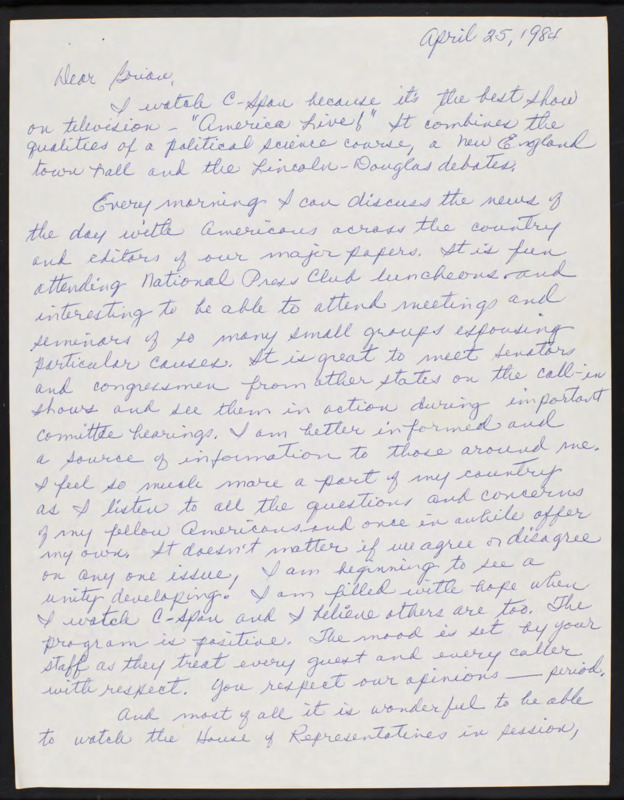 April 25, 1984
Dear Brian,
I watch C-Span because it's the best show
on television - "America Live!" It combines the
qualities of a political science course, a New England
town hall and the Lincoln-Douglas debates.
Every morning I can discuss the news of
the day with Americans across the country
and editors of our major papers. It is fun
attending National Press Club luncheons and
interesting to be able to attend meetings and
seminars of so many small groups espousing
particular causes. It is great to meet senators
and congressmen from other states on the call-in
shows and see them in action during important
comittee hearings. I am better informed and
a source of information to those around me.
I feel so much more a part of my country
as I listen to all the questions and concerns
of my fellow Americans and once in awhile offer
my own. It doesn't matter if we agree or disagree
on any one issue, I am beginning to see a
unity developing. I am filled with hope when
I watch C-Span and I believe others are too. The
program is positive. The mood is set by your
staff as they treat every guest and every caller
with respect. You respect our opinions — period.
And most of all it is wonderful to be able
to watch the House of Representatives in session,